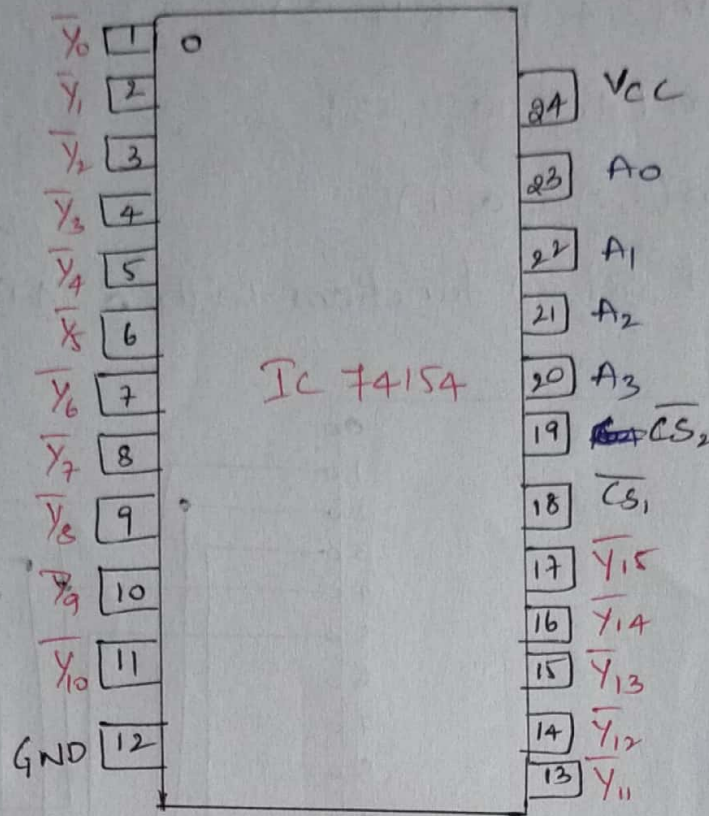 Y̅₀ 1
Y̅₁ 2
Y̅₂ 3
Y̅₃ 4
Y̅₄ 5
Y̅₅ 6
Y̅₆ 7
Y̅₇ 8
Y̅₈ 9
Y̅₉ 10
Y̅₁₀ 11
GND 12
IC 74154
24 VCC
23 A0
22 A₁
21 A₂
20 A₃
19 C̅S̅₂
18 C̅S̅₁
17 Y̅₁₅
16 Y̅₁₄
15 Y̅₁₃
14 Y̅₁₂
13 Y̅₁₁